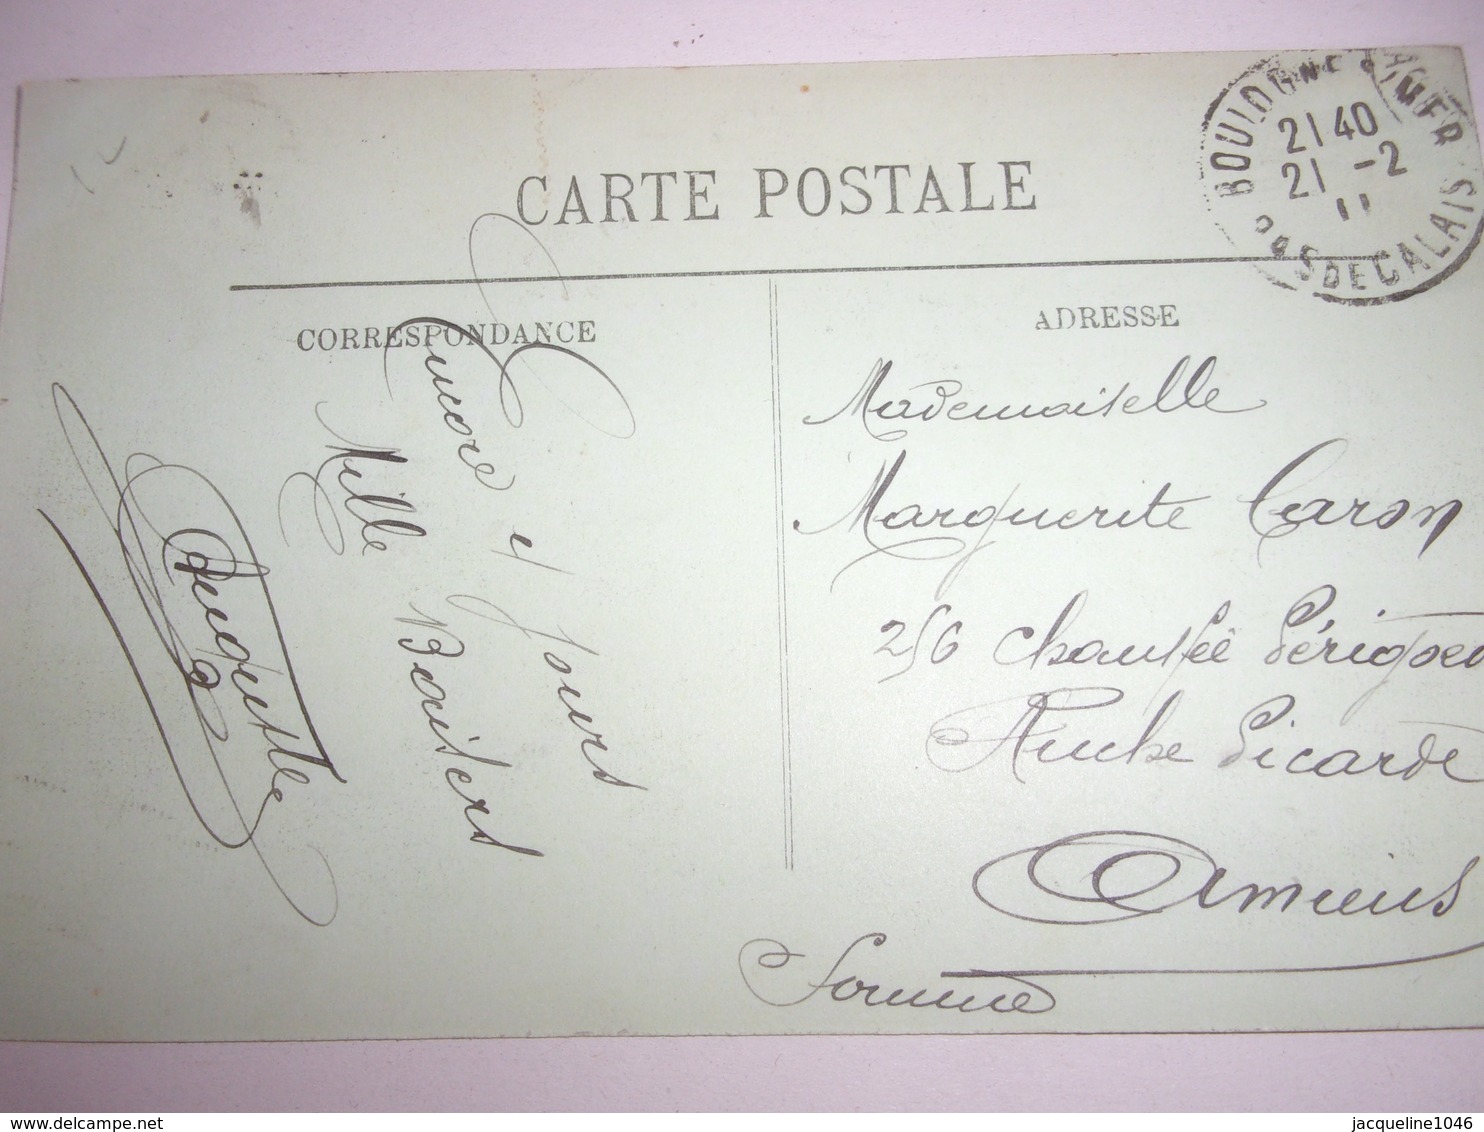 CARTE POSTALE
BOULOGNE S MER
21 40
21 -2
11
PAS DE CALAIS
CORRESPONDANCE
Encore 4 Jours
Mille Baisers
Auguste
ADRESSE
Mademoiselle
Marguerite Caron
256 Chaussée
Picarde
Amiens
Somme
delcampe.net
jacqueline1046